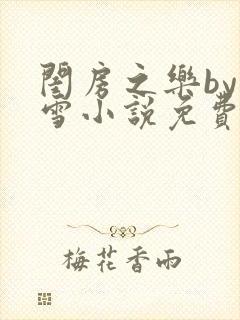 閨房之樂by
雪小說免費
梅花香雨